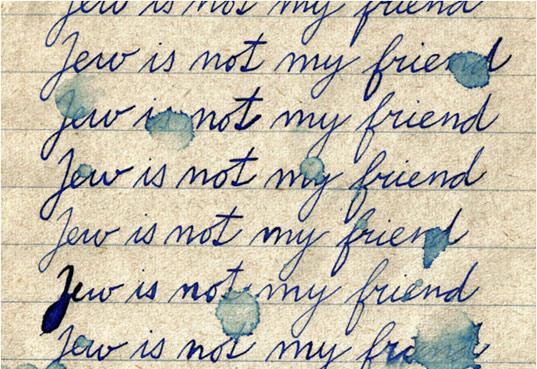 Jew is not my friend
Jew is not my friend
Jew is not my friend
Jew is not my friend
Jew is not my friend
Jew is not my friend
Jew is not my friend